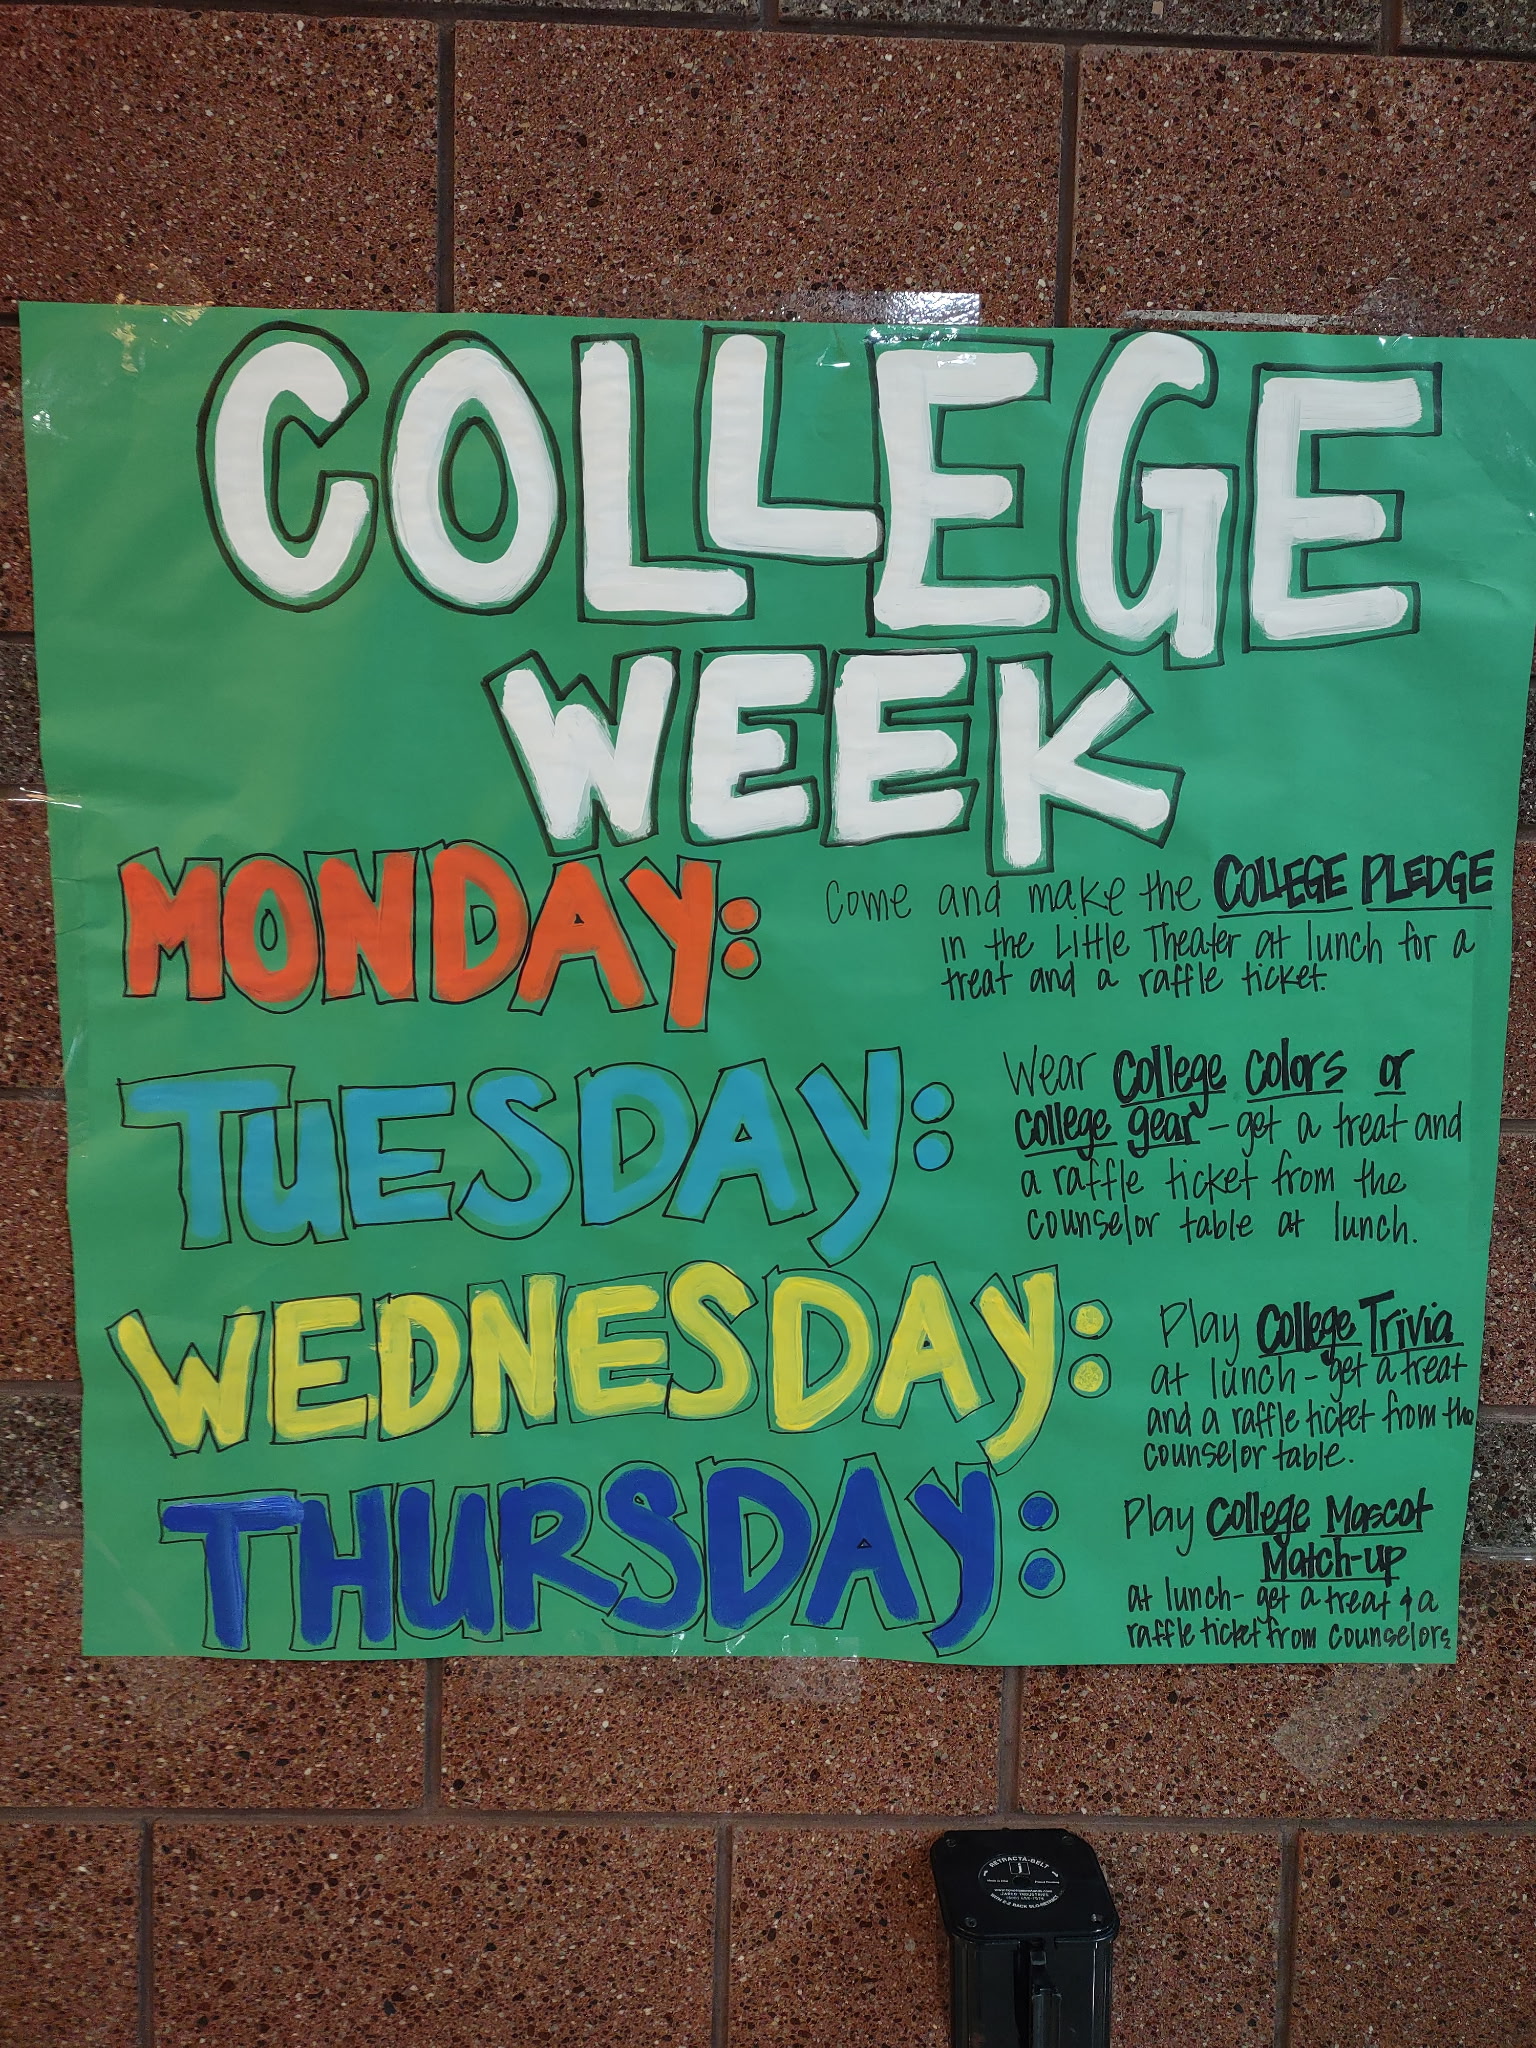 COLLEGE
WEEK
MONDAY:
Come and make the COLLEGE PLEDGE
in the Little Theater at lunch for a
treat and a raffle ticket.
TUESDAY:
Wear College Colors or
College gear - get a treat and
a raffle ticket from the
counselor table at lunch.
WEDNESDAY:
Play College Trivia
at lunch - get a treat
and a raffle ticket from the
counselor table.
THURSDAY:
Play College Mascot
Match-up
at lunch - get a treat & a
raffle ticket from counselors
RETRACTA-BELT